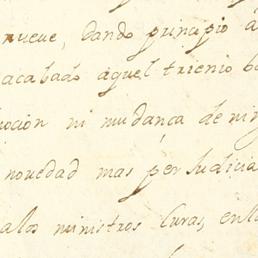 nueve, dando principio á
acabado aquel trienio
ni mudança de
novedad mas perjudicia
alos ministros Curas, enlo